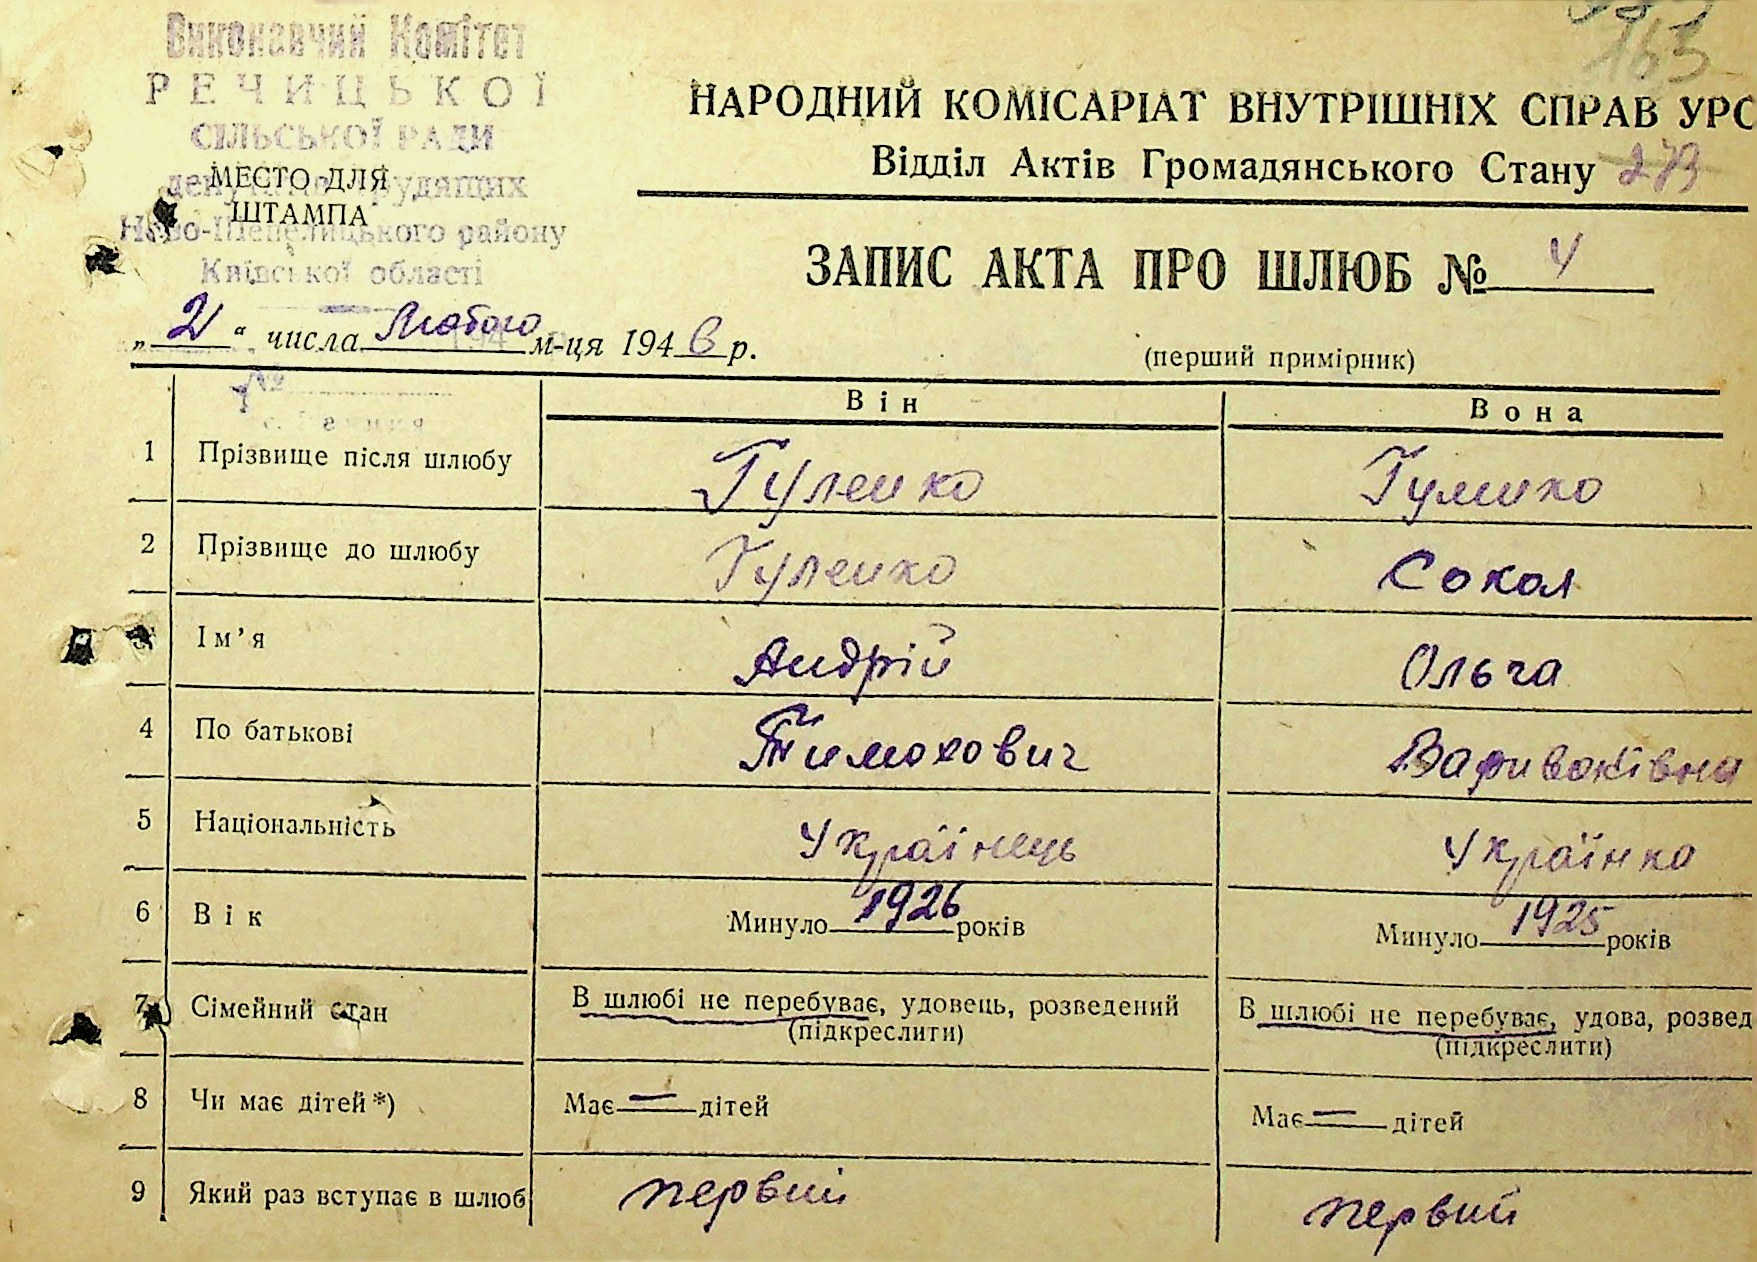 Виконавчий Комітет
РЕЧИЦЬКОЇ
СІЛЬСЬКОЇ РАДИ
трудящих
Ново-Шепелицького району
Київської області
МЕСТО ДЛЯ
ШТАМПА
163
НАРОДНИЙ КОМІСАРІАТ ВНУТРІШНІХ СПРАВ УРС
Відділ Актів Громадянського Стану 273
ЗАПИС АКТА ПРО ШЛЮБ № 4
„2“ числа Лютого м-ця 1946 р.
(перший примірник)
№
Він Вона
1 Прізвище після шлюбу Гуленко Гуленко
2 Прізвище до шлюбу Гуленко Сокол
3 Ім’я Андрій Ольга
4 По батькові Тимохович
5 Національність Українець Українка
6 Вік Минуло 1926 років Минуло 1925 років
7 Сімейний стан В шлюбі не перебуває, удовець, розведений В шлюбі не перебуває, удова, розвед
(підкреслити) (підкреслити)
8 Чи має дітей*) Має — дітей Має — дітей
9 Який раз вступає в шлюб первий первий